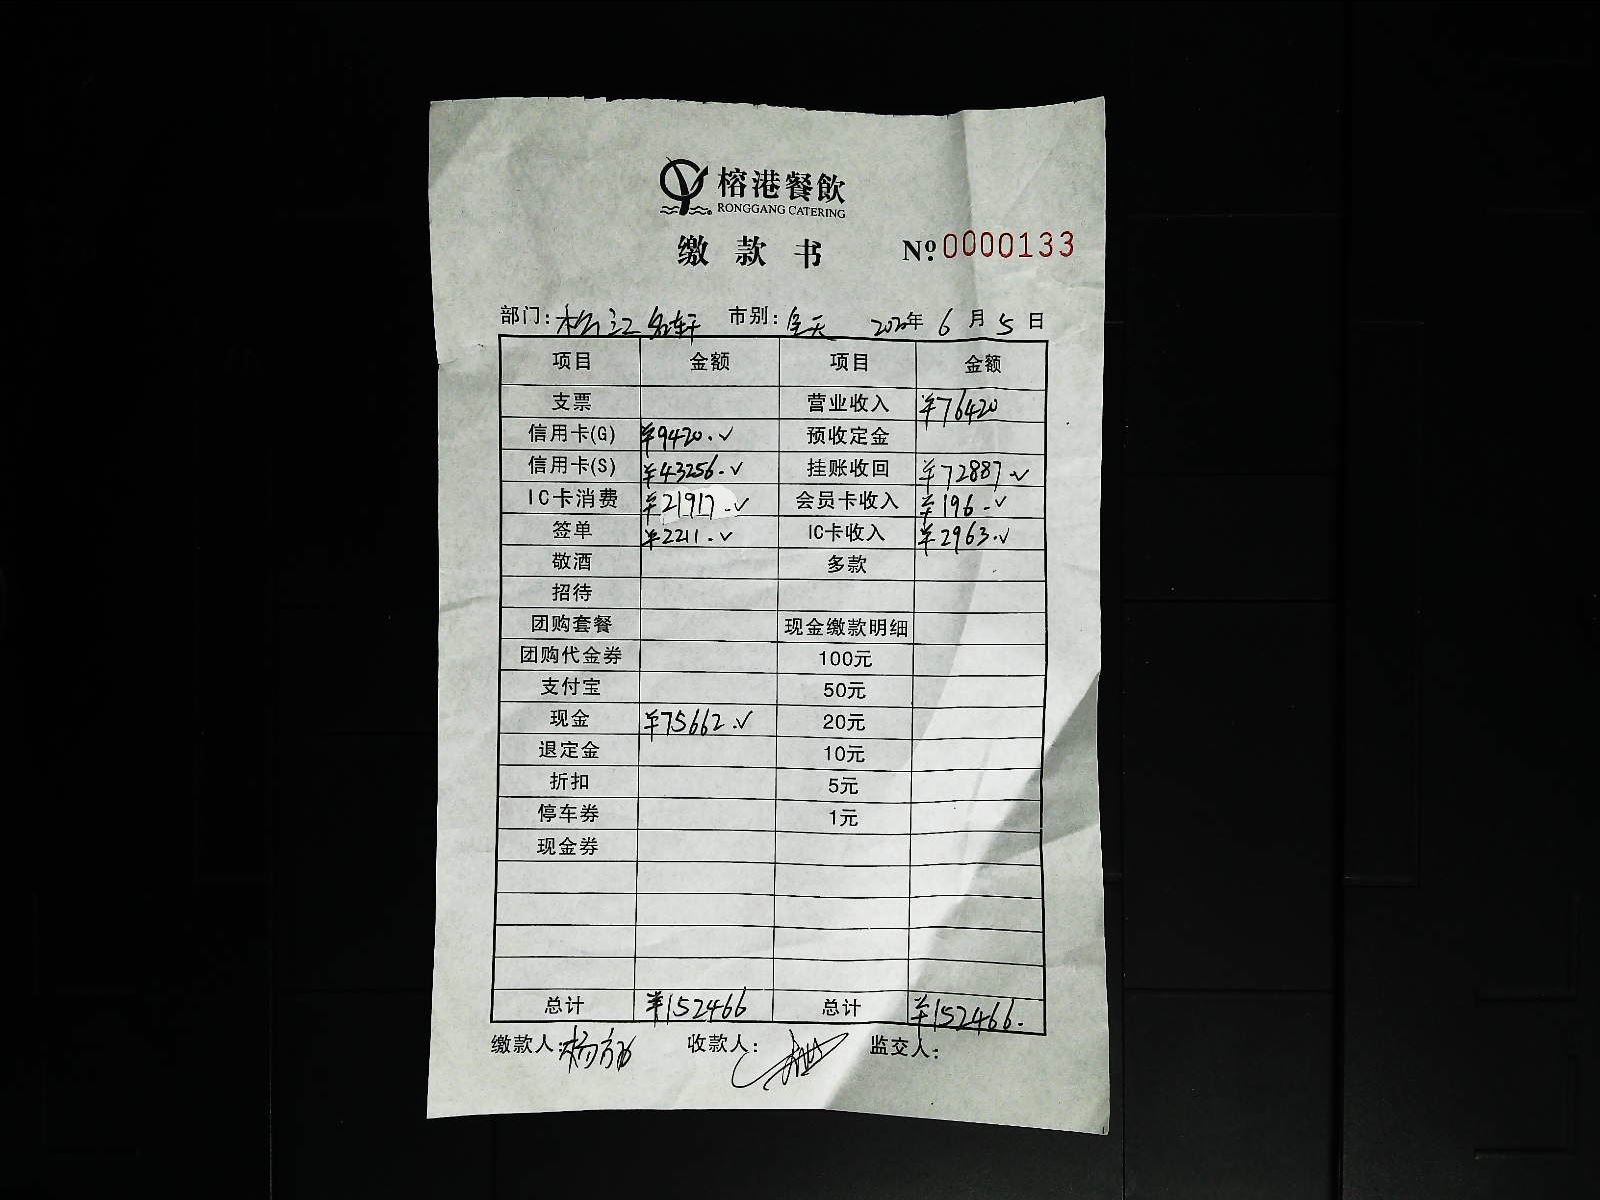 榕港餐飲
RONGGANG CATERING
缴款书 Nº 0000133
部门: 松江名轩 市别: 全天 2020年 6月 5日
项目 金额 项目 金额
支票 营业收入 ¥76420
信用卡(G) ¥9420.✓ 预收定金
信用卡(S) ¥43256.✓ 挂账收回 ¥72887.✓
IC卡消费 ¥21917.✓ 会员卡收入 ¥196.✓
签单 ¥2211.✓ IC卡收入 ¥2963.✓
敬酒 多款
招待
团购套餐 现金缴款明细
团购代金券 100元
支付宝 50元
现金 ¥75662.✓ 20元
退定金 10元
折扣 5元
停车券 1元
现金券
总计 ¥152466 总计 ¥152466.
缴款人: 收款人: 监交人: